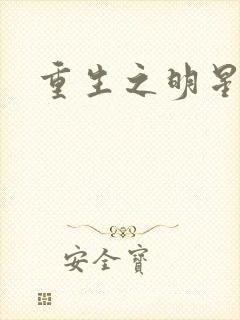 重生之明星
安全寶